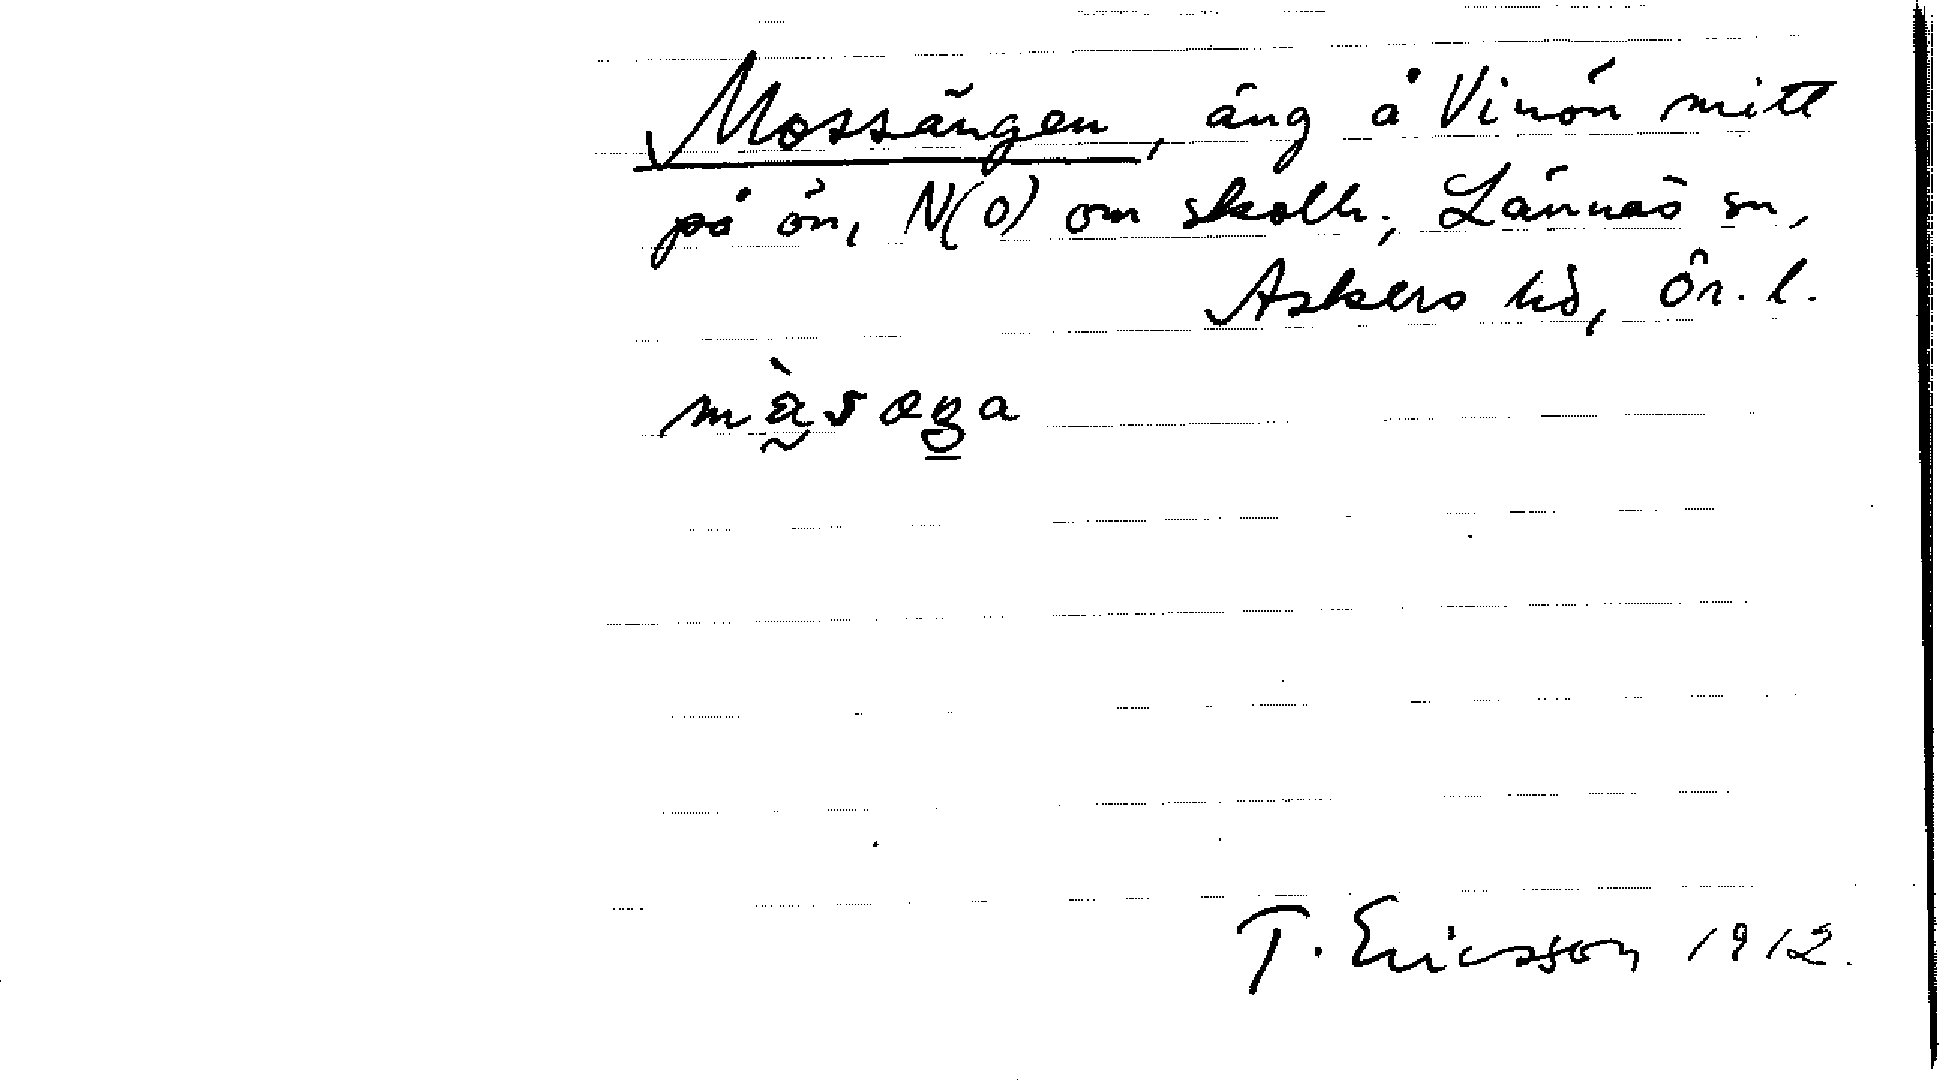 Mossängen, äng å Vinön mitt
på ön, N(O) om skolh., Lännäs sn,
Askers hd, Ör. l.
T. Ericsson 1912.